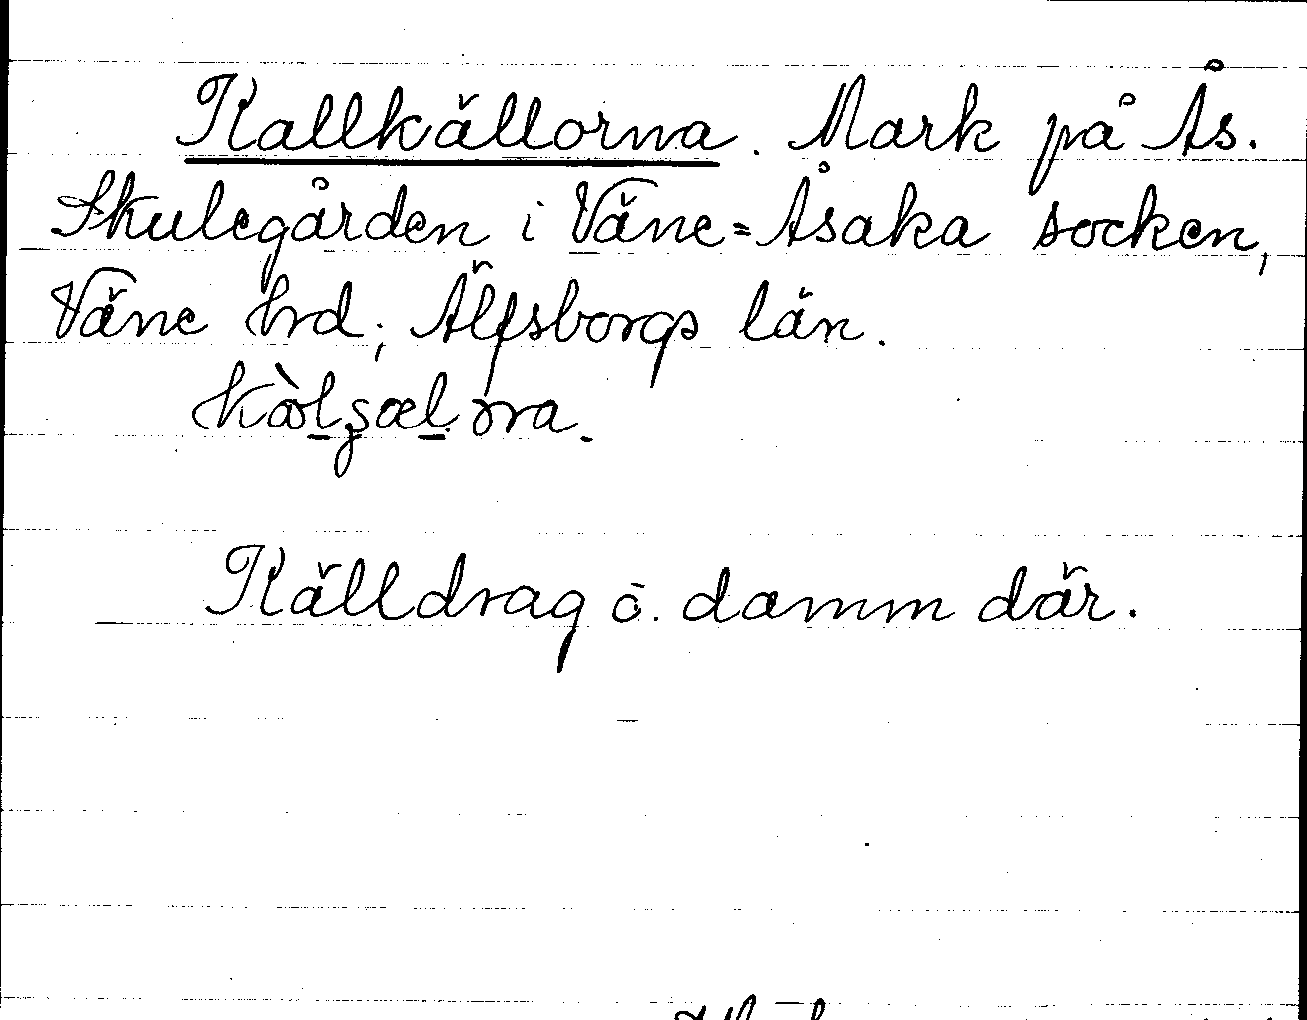 Kallkällorna. Mark på Ås.
Skulegården i Väne=Åsaka socken,
Väne hrd, Älfsborgs län.
Källdrag o. damm där.